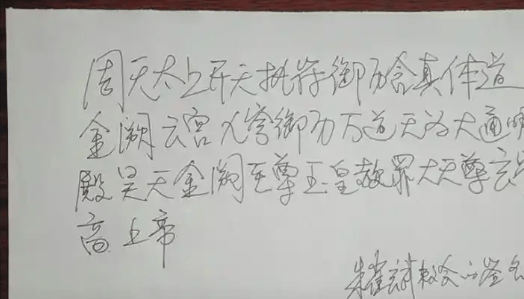 周天太上开天执符御历含真体道
金阙云宫九穹御历万道无为大通明
殿昊天金阙至尊玉皇赦罪大天尊玄穹
高上帝